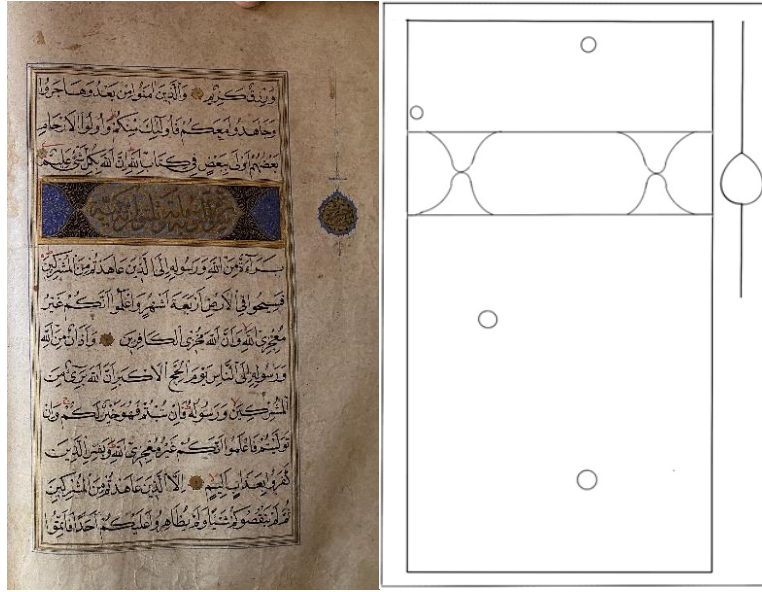 وَرِزْقٌ كَرِيمٌ وَالَّذِينَ آمَنُوا مِنْ بَعْدُ وَهَاجَرُوا
وَجَاهَدُوا مَعَكُمْ فَأُولَٰئِكَ مِنْكُمْ وَأُولُوا الْأَرْحَامِ
بَعْضُهُمْ أَوْلَىٰ بِبَعْضٍ فِي كِتَابِ اللَّهِ إِنَّ اللَّهَ بِكُلِّ شَيْءٍ عَلِيمٌ
بَرَاءَةٌ مِنَ اللَّهِ وَرَسُولِهِ إِلَى الَّذِينَ عَاهَدْتُمْ مِنَ الْمُشْرِكِينَ
فَسِيحُوا فِي الْأَرْضِ أَرْبَعَةَ أَشْهُرٍ وَاعْلَمُوا أَنَّكُمْ غَيْرُ
مُعْجِزِي اللَّهِ وَأَنَّ اللَّهَ مُخْزِي الْكَافِرِينَ وَأَذَانٌ مِنَ اللَّهِ
وَرَسُولِهِ إِلَى النَّاسِ يَوْمَ الْحَجِّ الْأَكْبَرِ أَنَّ اللَّهَ بَرِيءٌ مِنَ
الْمُشْرِكِينَ وَرَسُولُهُ فَإِنْ تُبْتُمْ فَهُوَ خَيْرٌ لَكُمْ وَإِنْ
تَوَلَّيْتُمْ فَاعْلَمُوا أَنَّكُمْ غَيْرُ مُعْجِزِي اللَّهِ وَبَشِّرِ الَّذِينَ
كَفَرُوا بِعَذَابٍ أَلِيمٍ إِلَّا الَّذِينَ عَاهَدْتُمْ مِنَ الْمُشْرِكِينَ
ثُمَّ لَمْ يَنْقُصُوكُمْ شَيْئًا وَلَمْ يُظَاهِرُوا عَلَيْكُمْ أَحَدًا فَأَتِمُّوا